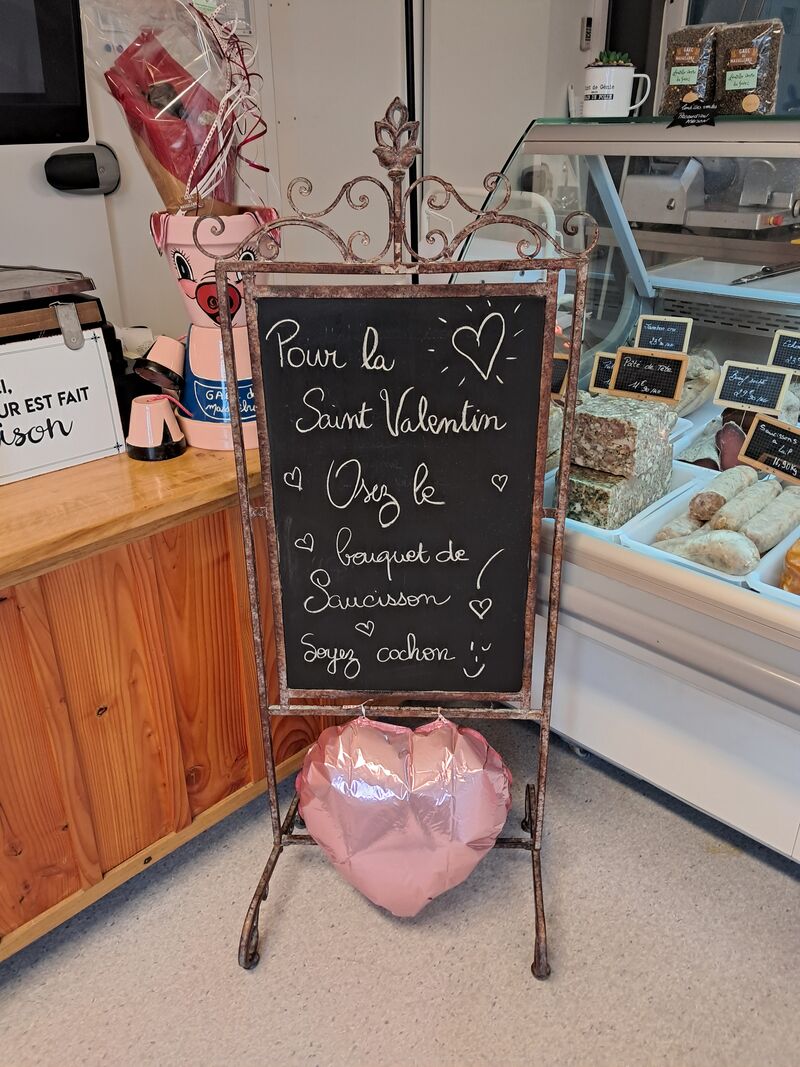 Pour la
Saint Valentin
Osez le
bouquet de
Saucisson
Soyez cochon
UR EST FAIT
ison
GAEC
Pâté de Tête
Jambon cru
Saucissons